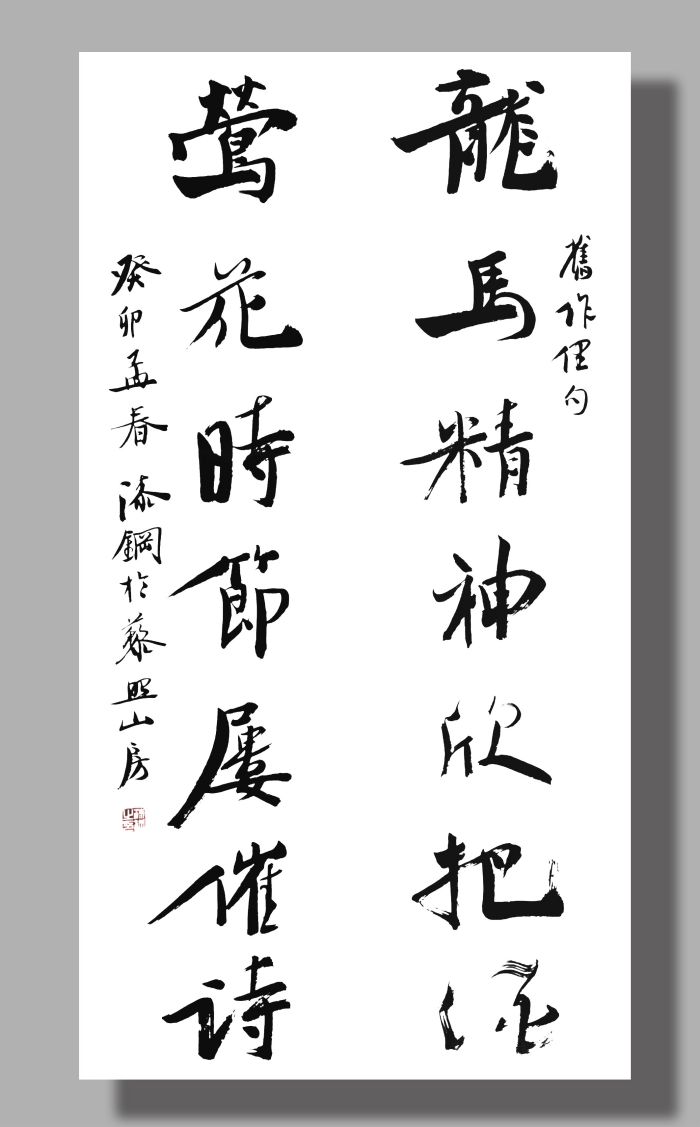 舊作俚句
龍馬精神欣把
鶯花時節屢催詩
癸卯孟春漆鋼於藜照山房